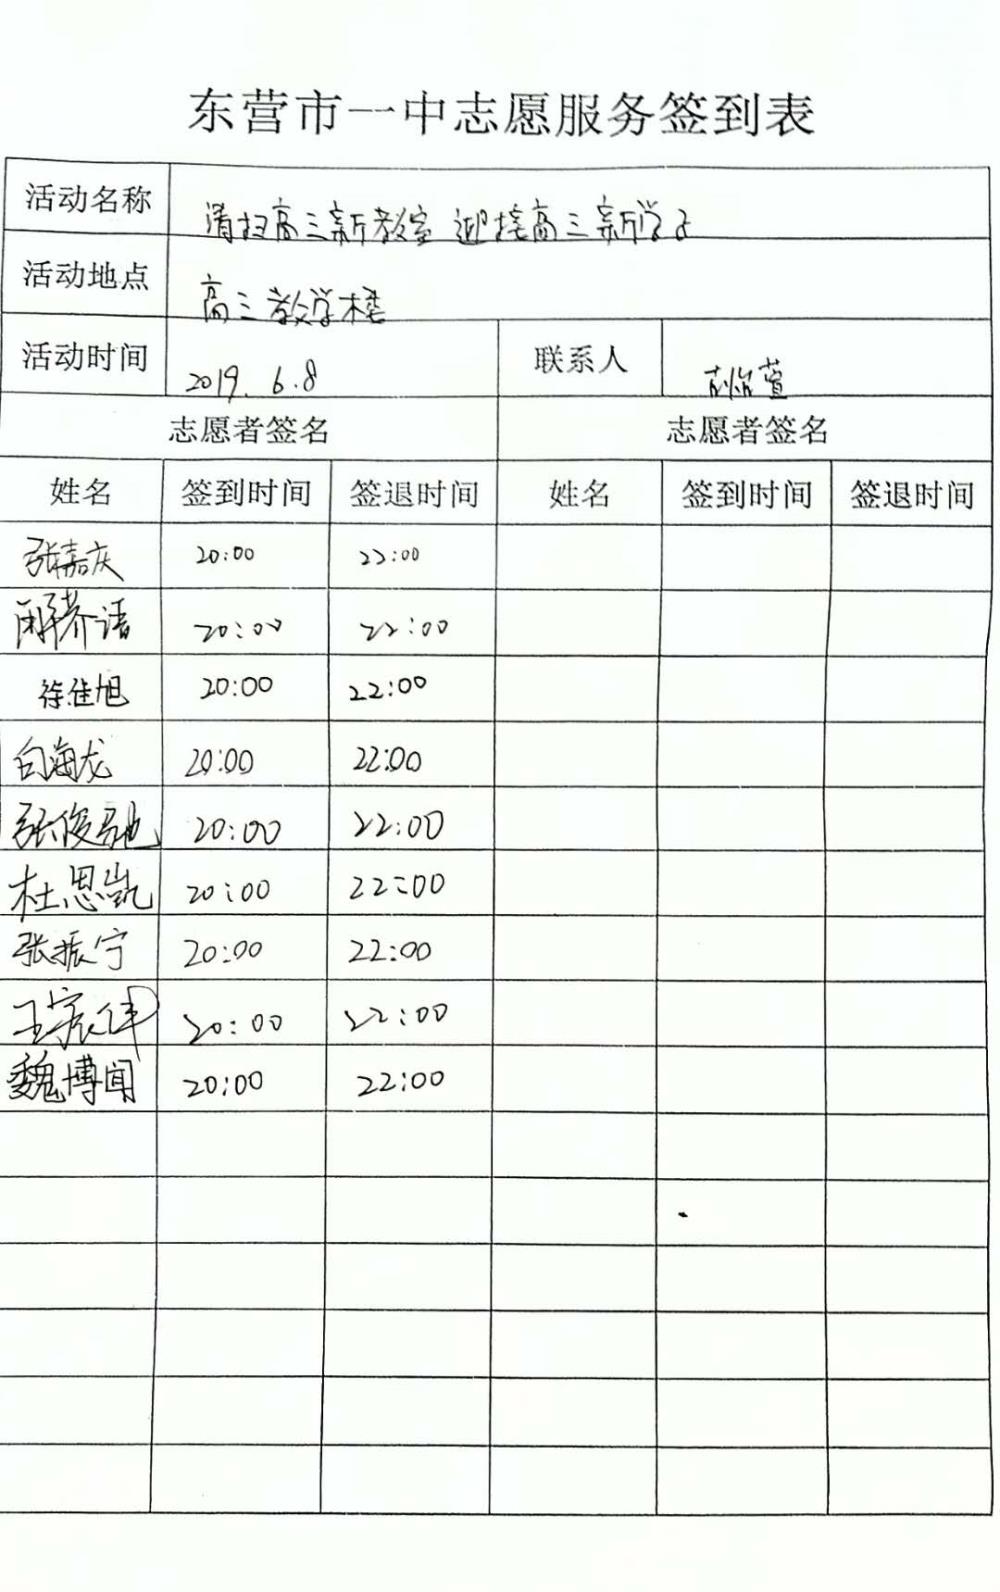 东营市一中志愿服务签到表
活动名称 清扫高三新教室 迎接高三新学子
活动地点 高三教学楼
活动时间 2019.6.8 联系人
志愿者签名 志愿者签名
姓名 签到时间 签退时间 姓名 签到时间 签退时间
张嘉庆 20:00 22:00
20:00 22:00
徐佳旭 20:00 22:00
白海龙 20:00 22:00
张俊驰 20:00 22:00
杜恩凯 20:00 22:00
张振宁 20:00 22:00
王宸伟 20:00 22:00
魏博闻 20:00 22:00